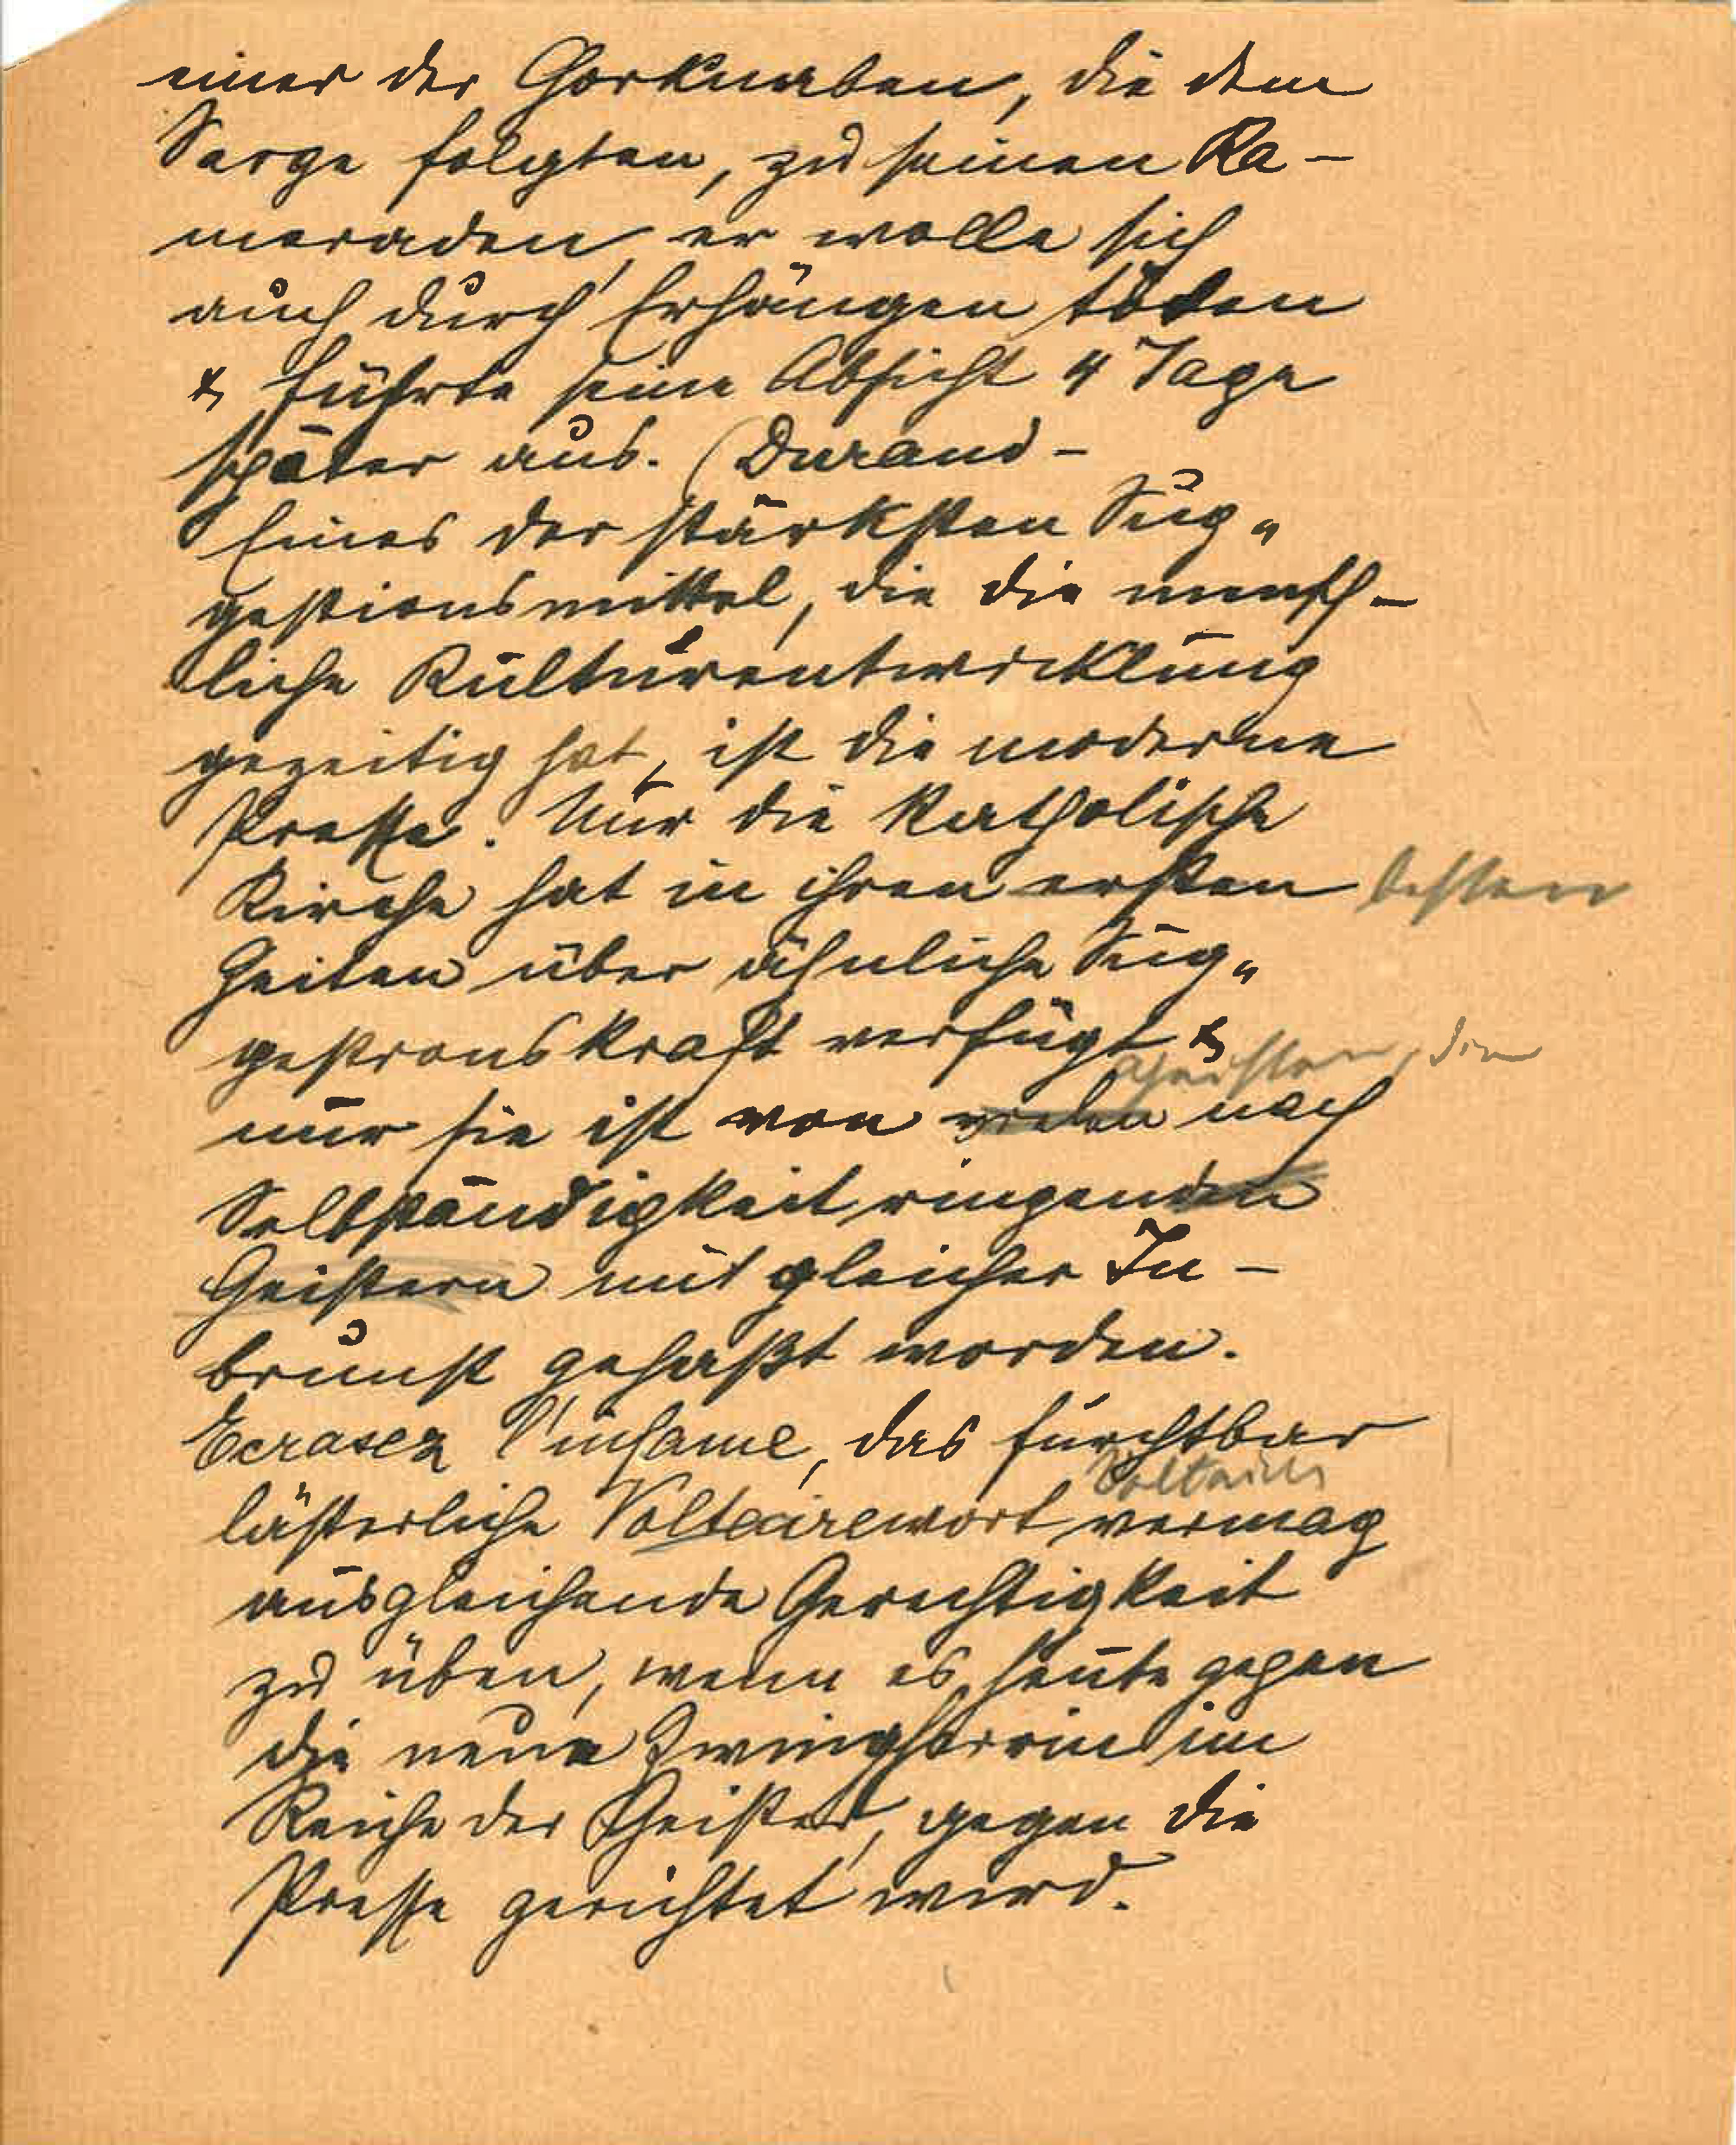 einer der Chorknaben, die dem
Sarge folgten, zu seinen Ka-
meraden, er wolle sich
auch durch Erhängen töten
& führte seine Absicht 4 Tage
später aus. (Durand-
Eines der stärksten Sug„
gestionsmittel, die die mensch-
liche Kulturentwicklung
gezeitig hat, ist die moderne
Presse. Nur die katholische
Kirche hat in ihren ersten besten
Zeiten über ähnliche Sug„
gestionskraft verfügt &
Geistern, die
nur sie ist von vielen nach
Selbständigkeit ringenden
Geistern mit gleicher In-
brunst gehaßt worden.
Ecrasez l'infame, das furchtbar
Voltaires
lästerliche Voltairewort vermag
ausgleichende Gerechtigkeit
zu üben, wenn es heute gegen
die neue Zwingherrin im
Reiche der Geister, gegen die
Presse gerichtet wird.